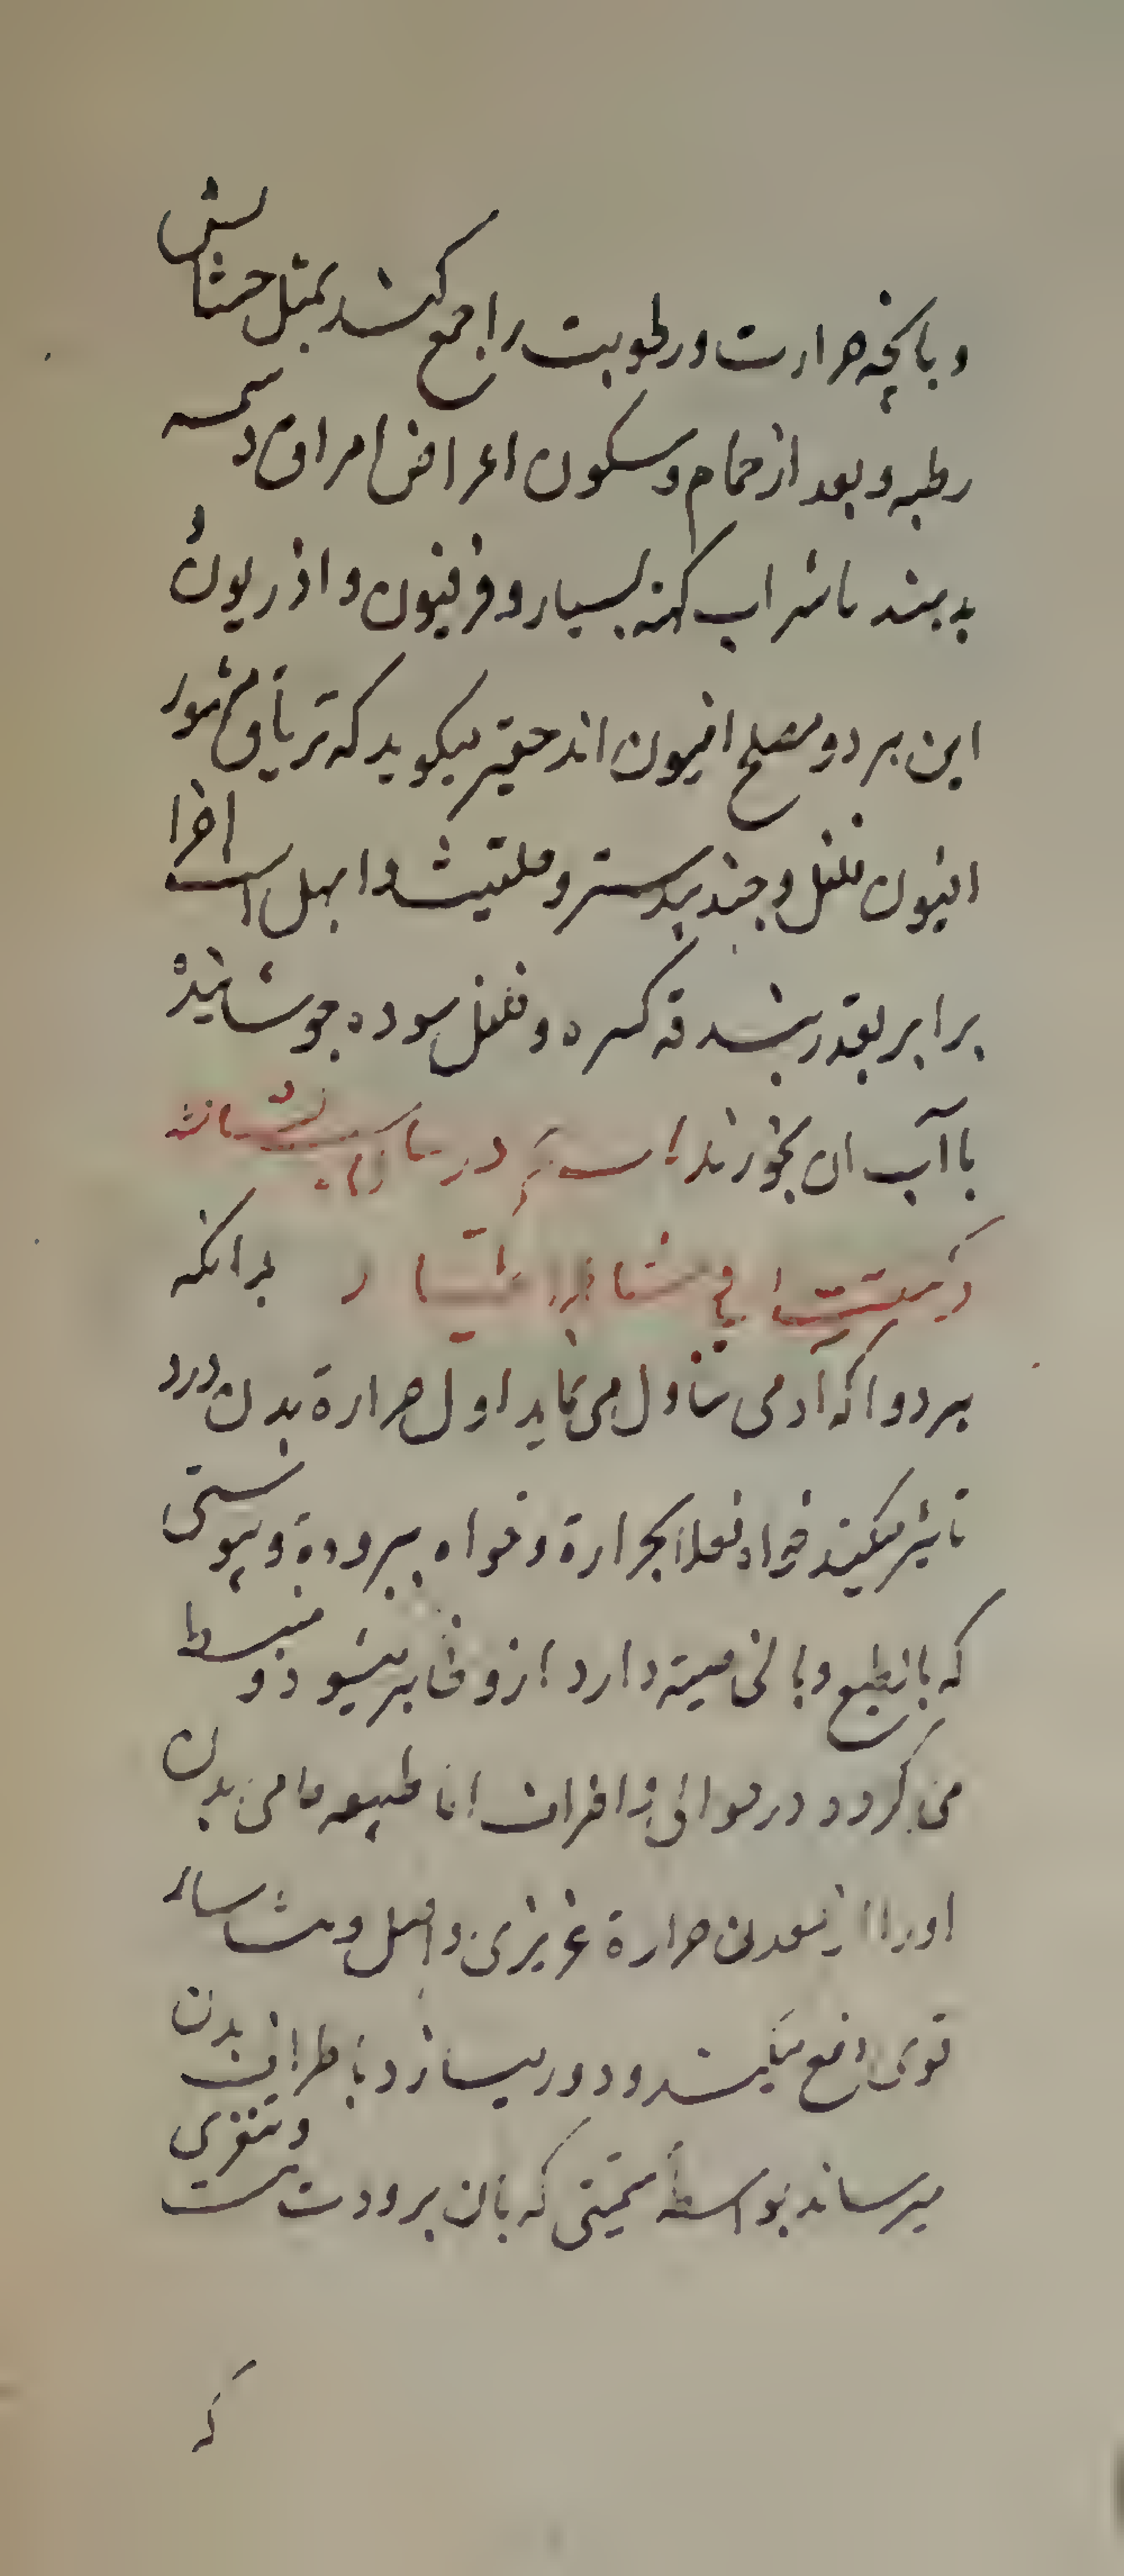 و بانچه حرارت و رطوبت را جمع کند بمثل حشایش
رطبه و بعد از حمام و سکون اعراض امراق دسمه
بدهند با شراب کهنه بسیار و فرفیون و اذریون و
این هر دو مصلح افیون اند حقیر میگوید که تریاق مشهور
افیون فلفل و جندبیدستر و حلتیت و ابهل است اجزا
برابر بقدر بندقه کرده و فلفل سوده جوشانیده
با آب ان بخورند در
فی بدانکه
هر دوا که آدمی تناول می نماید اول حرارة بدن درو
تاثیر میکند خواه فعلا بحرارة و خواه ببرودة و پیوستی
که بالطبع و بالخاصیته دارد ازو ظاهر میشود و منبسط
می گردد در حوالی و اطراف اما طبیعه حامی بدن
او را از معدن حرارة غریزی و اصل و منشا سایر
قوی دفع میکند و دور میسازد باطراف بدن
میرساند بواسطه سمیتی که بان برودت هست و تنفری
که